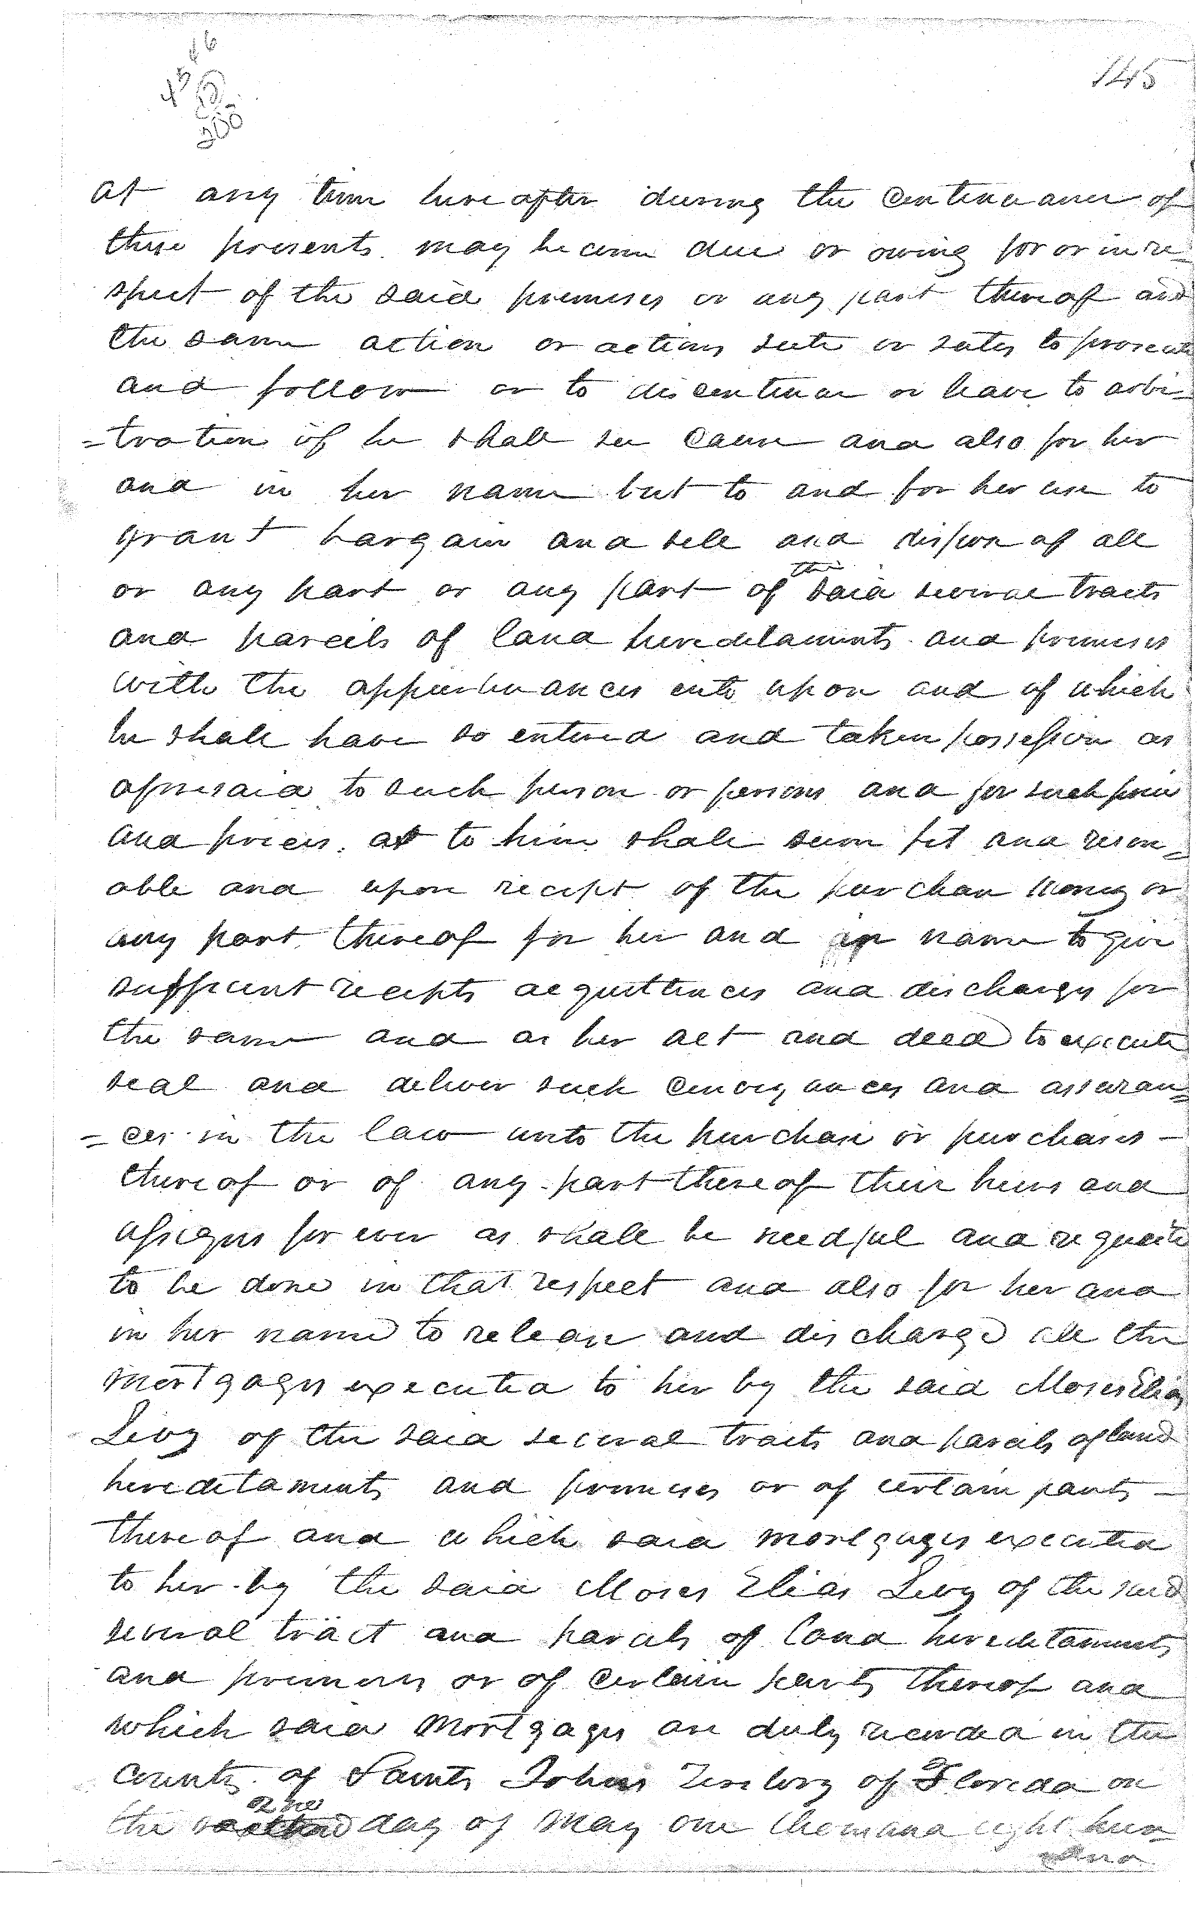 145
at any time hereafter during the continuance of
these presents may become due or owing for or in re-
spect of the said premises or any part thereof and
the same action or actions suit or suits to prosecute
and follow or to discontinue or leave to arbi-
=tration if he shall see cause and also for her
and in her name but to and for her use to
grant bargain and sell and dispose of all
or any part or any part of the said several tracts
and parcels of land hereditaments and premises
with the appurtenances into upon and of which
he shall have so entered and taken possession as
aforesaid to such person or persons and for such price
and prices as to him shall seem fit and reson-
able and upon receipt of the purchase money or
any part thereof for her and in name to give
sufficient receipts acquittences and discharges for
the same and as her act and deed to execute
seal and deliver such conveyances and assuran=
=ces in the law unto the purchase or purchases -
thereof or of any part thereof their heirs and
assigns for ever as shall be needful and requisite
to be done in that respect and also for her and
in her name to release and discharge all the
mortgages executed to her by the said Moses Elias
Levy of the said several tracts and parcels of land
hereditaments and premises or of certain parts -
thereof and which said mortgages executed
to her by the said Moses Elias Levy of the said
several tract and parcels of land hereditaments
and premises or of certain parts thereof and
which said mortgages are duly recorded in the
County of Saints Johns Teritory of Florida on
the 2nd day of May one thousand eight hun-